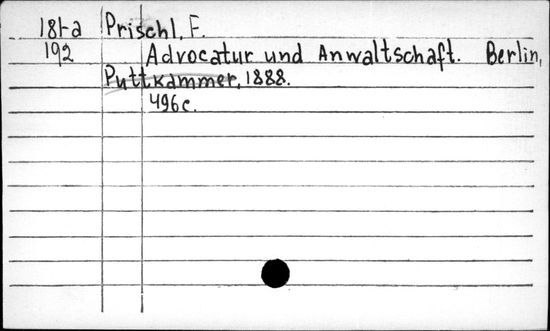 18га Prischl, F.
192 Advocatur und Anwaltschaft. Berlin,
Puttkammer, 1888.
496c.